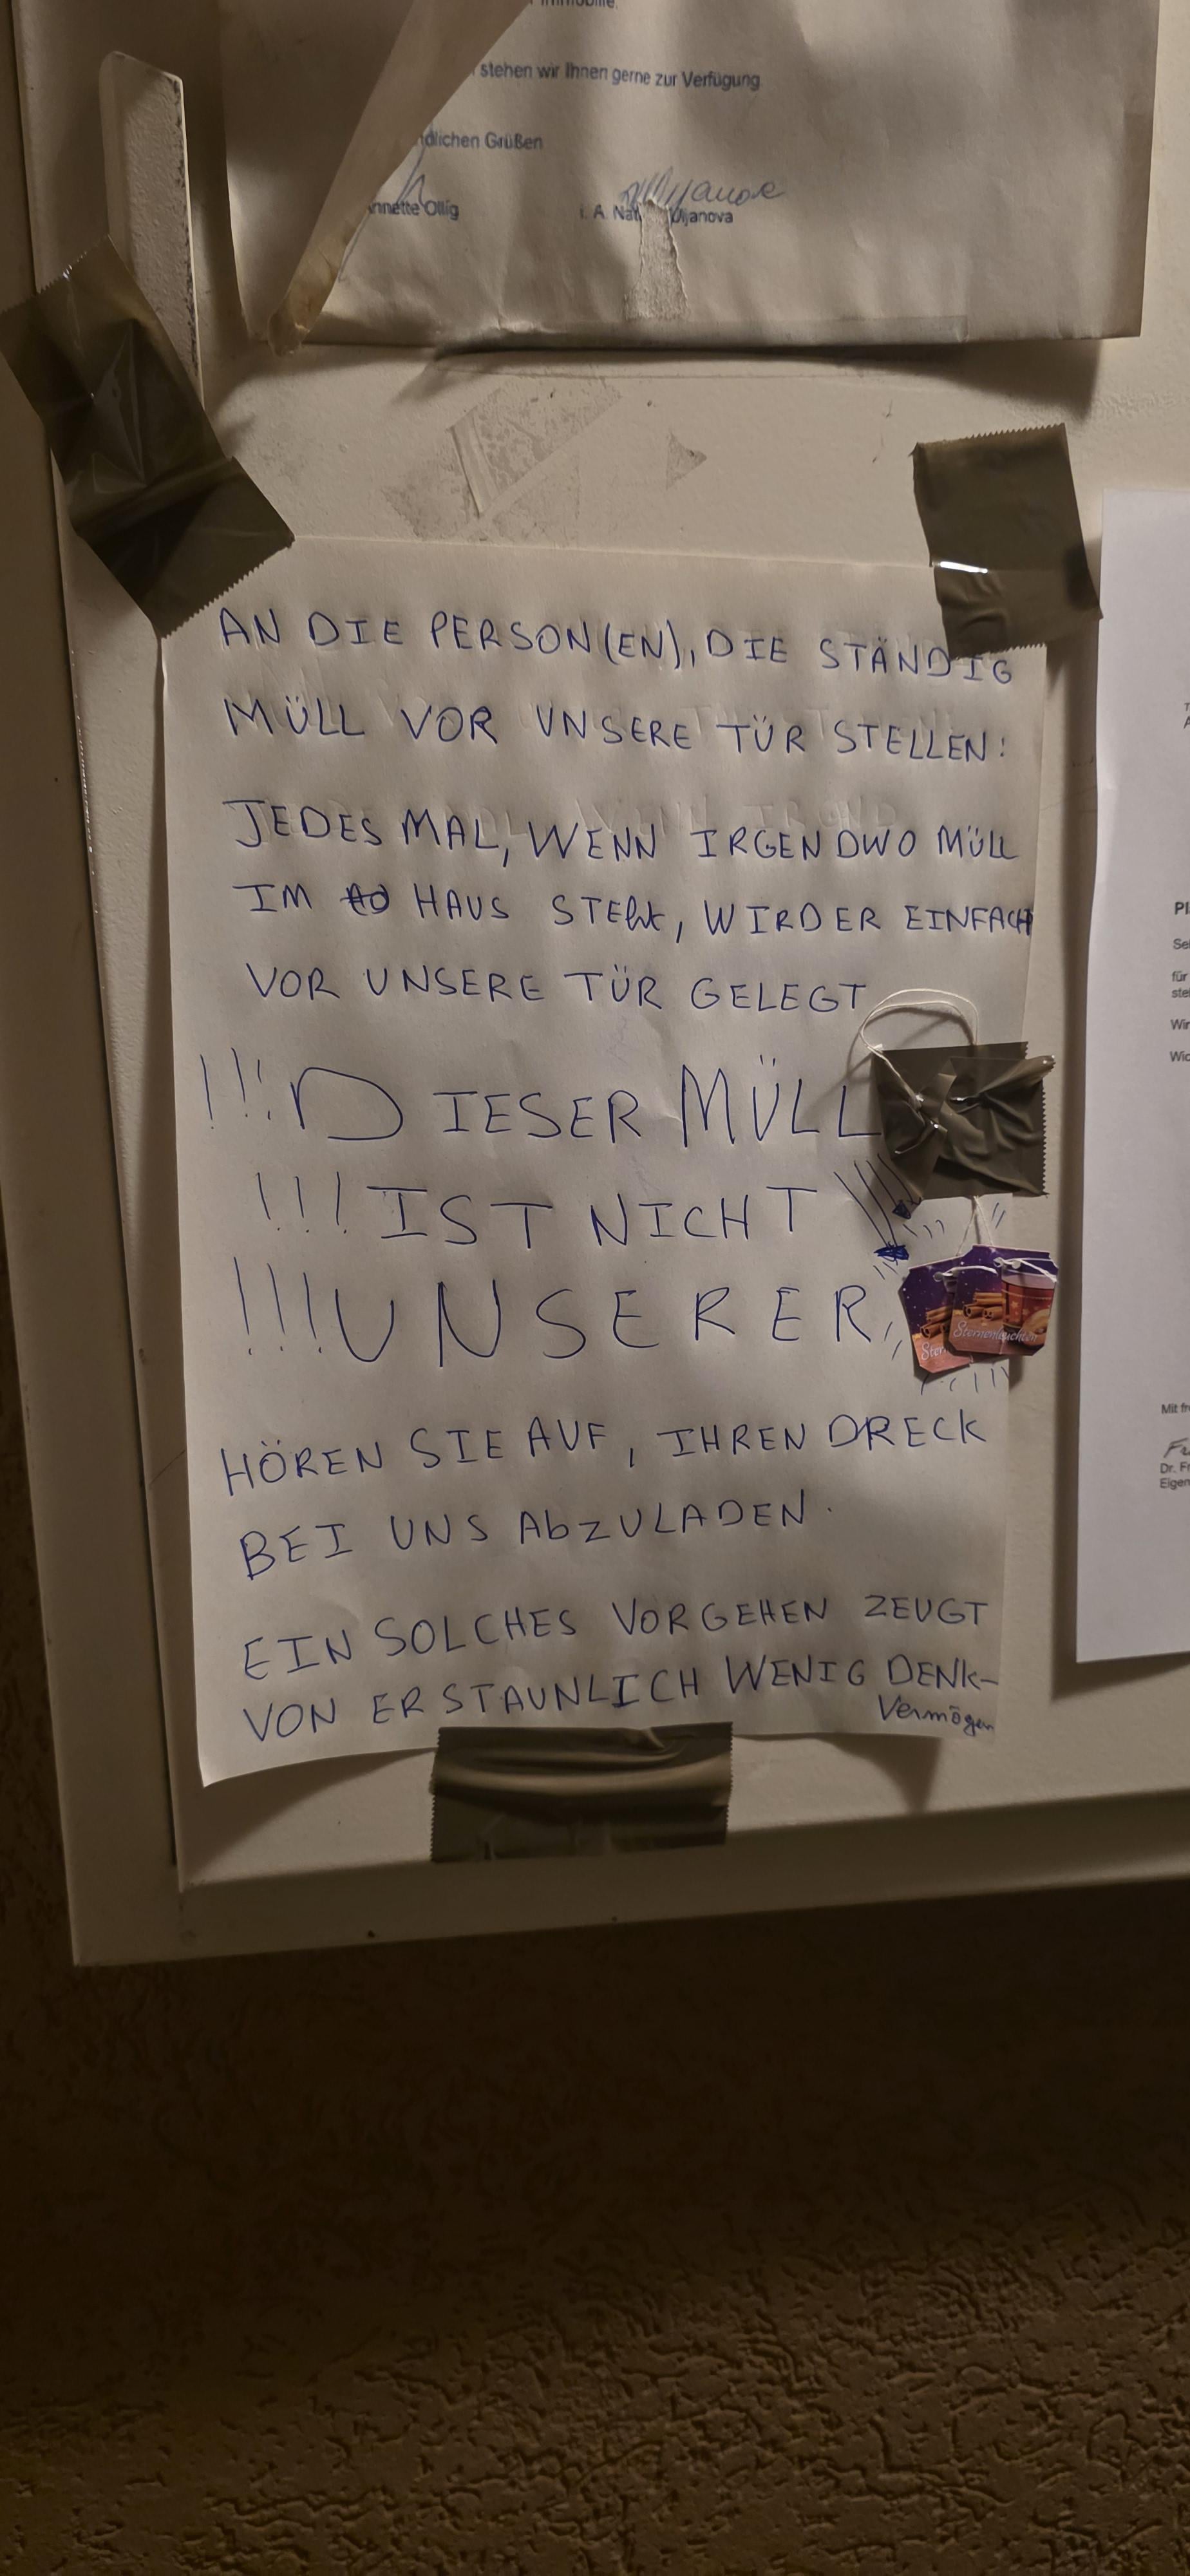 Immobilie.
stehen wir Ihnen gerne zur Verfügung.
dlichen Grüßen
nnette Ollig i. A. Nat Uljanova
AN DIE PERSON(EN), DIE STÄNDIG
MÜLL VOR UNSERE TÜR STELLEN:
JEDES MAL, WENN IRGENDWO MÜLL
IM HAUS STEht, WIRD ER EINFACH
VOR UNSERE TÜR GELEGT
!!! DIESER MÜLL
!!! IST NICHT
!!! UNSERER
Sternenleuchten
Ster
HÖREN SIE AUF, IHREN DRECK
BEI UNS AbZULADEN.
EIN SOLCHES VORGEHEN ZEUGT
VON ERSTAUNLICH WENIG DENK-
Vermögen
Pl
Se
für
ste
Wir
Wic
Mit fr
Dr. Fr
Eigen